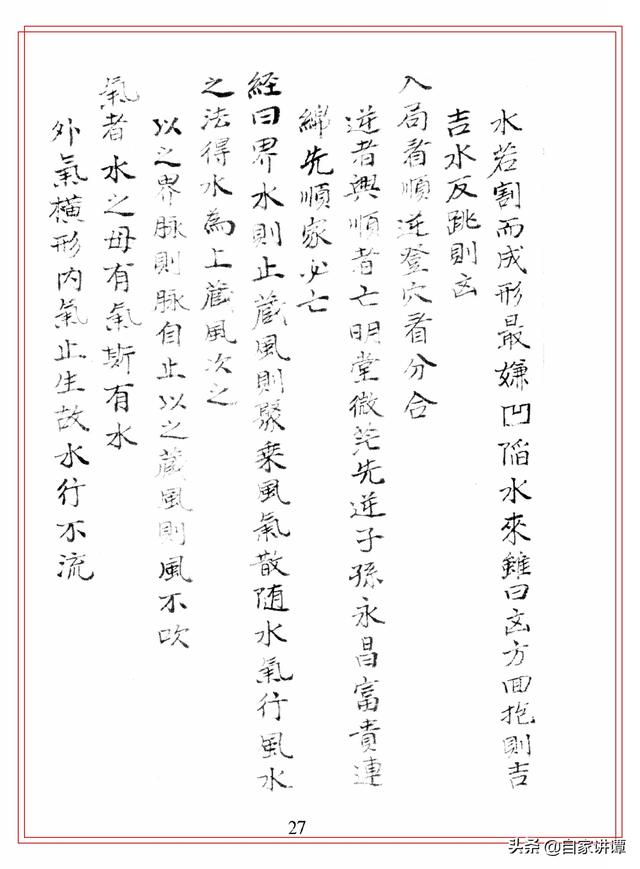 水若割而成形最嫌凹陷水來雖曰凶方回抱則吉
吉水反跳則凶
入局看順逆登穴看分合
逆者興順者亡明堂微茫先逆子孫永昌富貴連
綿先順家必亡
経曰界水則止藏風則聚乗風氣散随水氣行風水
之法得水為上藏風次之
以之界脉則脉自止以之藏風則風不吹
氣者水之母有氣斯有水
外氣橫形内氣止生故水行不流
27
头条 @自家讲谭